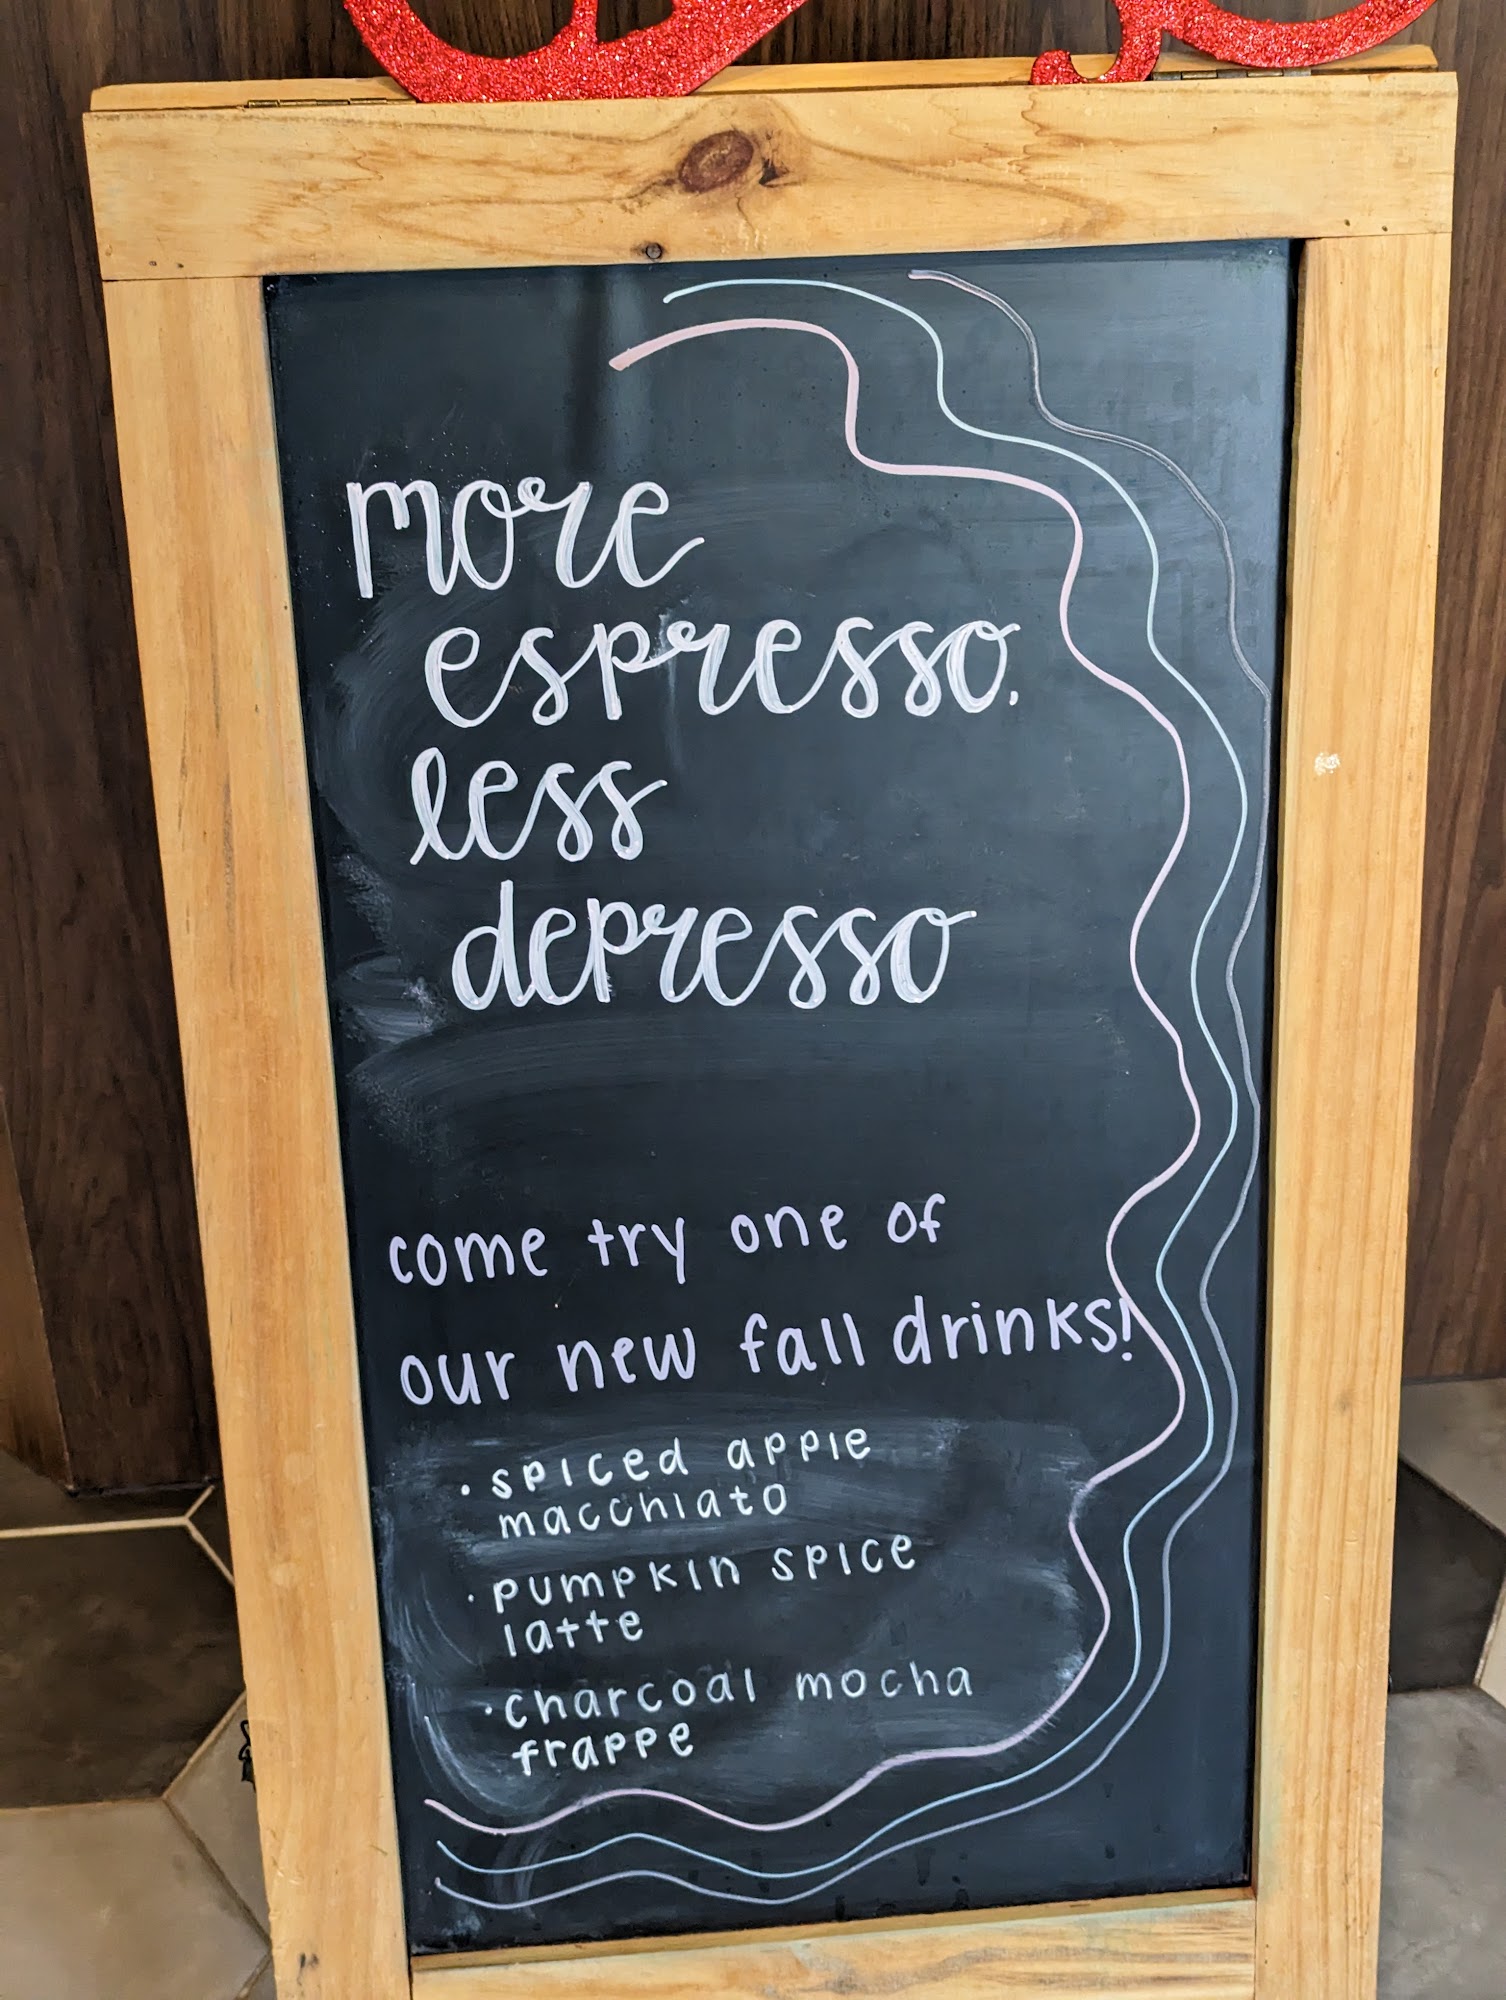 more
espresso.
less
depresso
come try one of
our new fall drinks!
· spiced apple
macchiato
· pumpkin spice
latte
· charcoal mocha
frappe